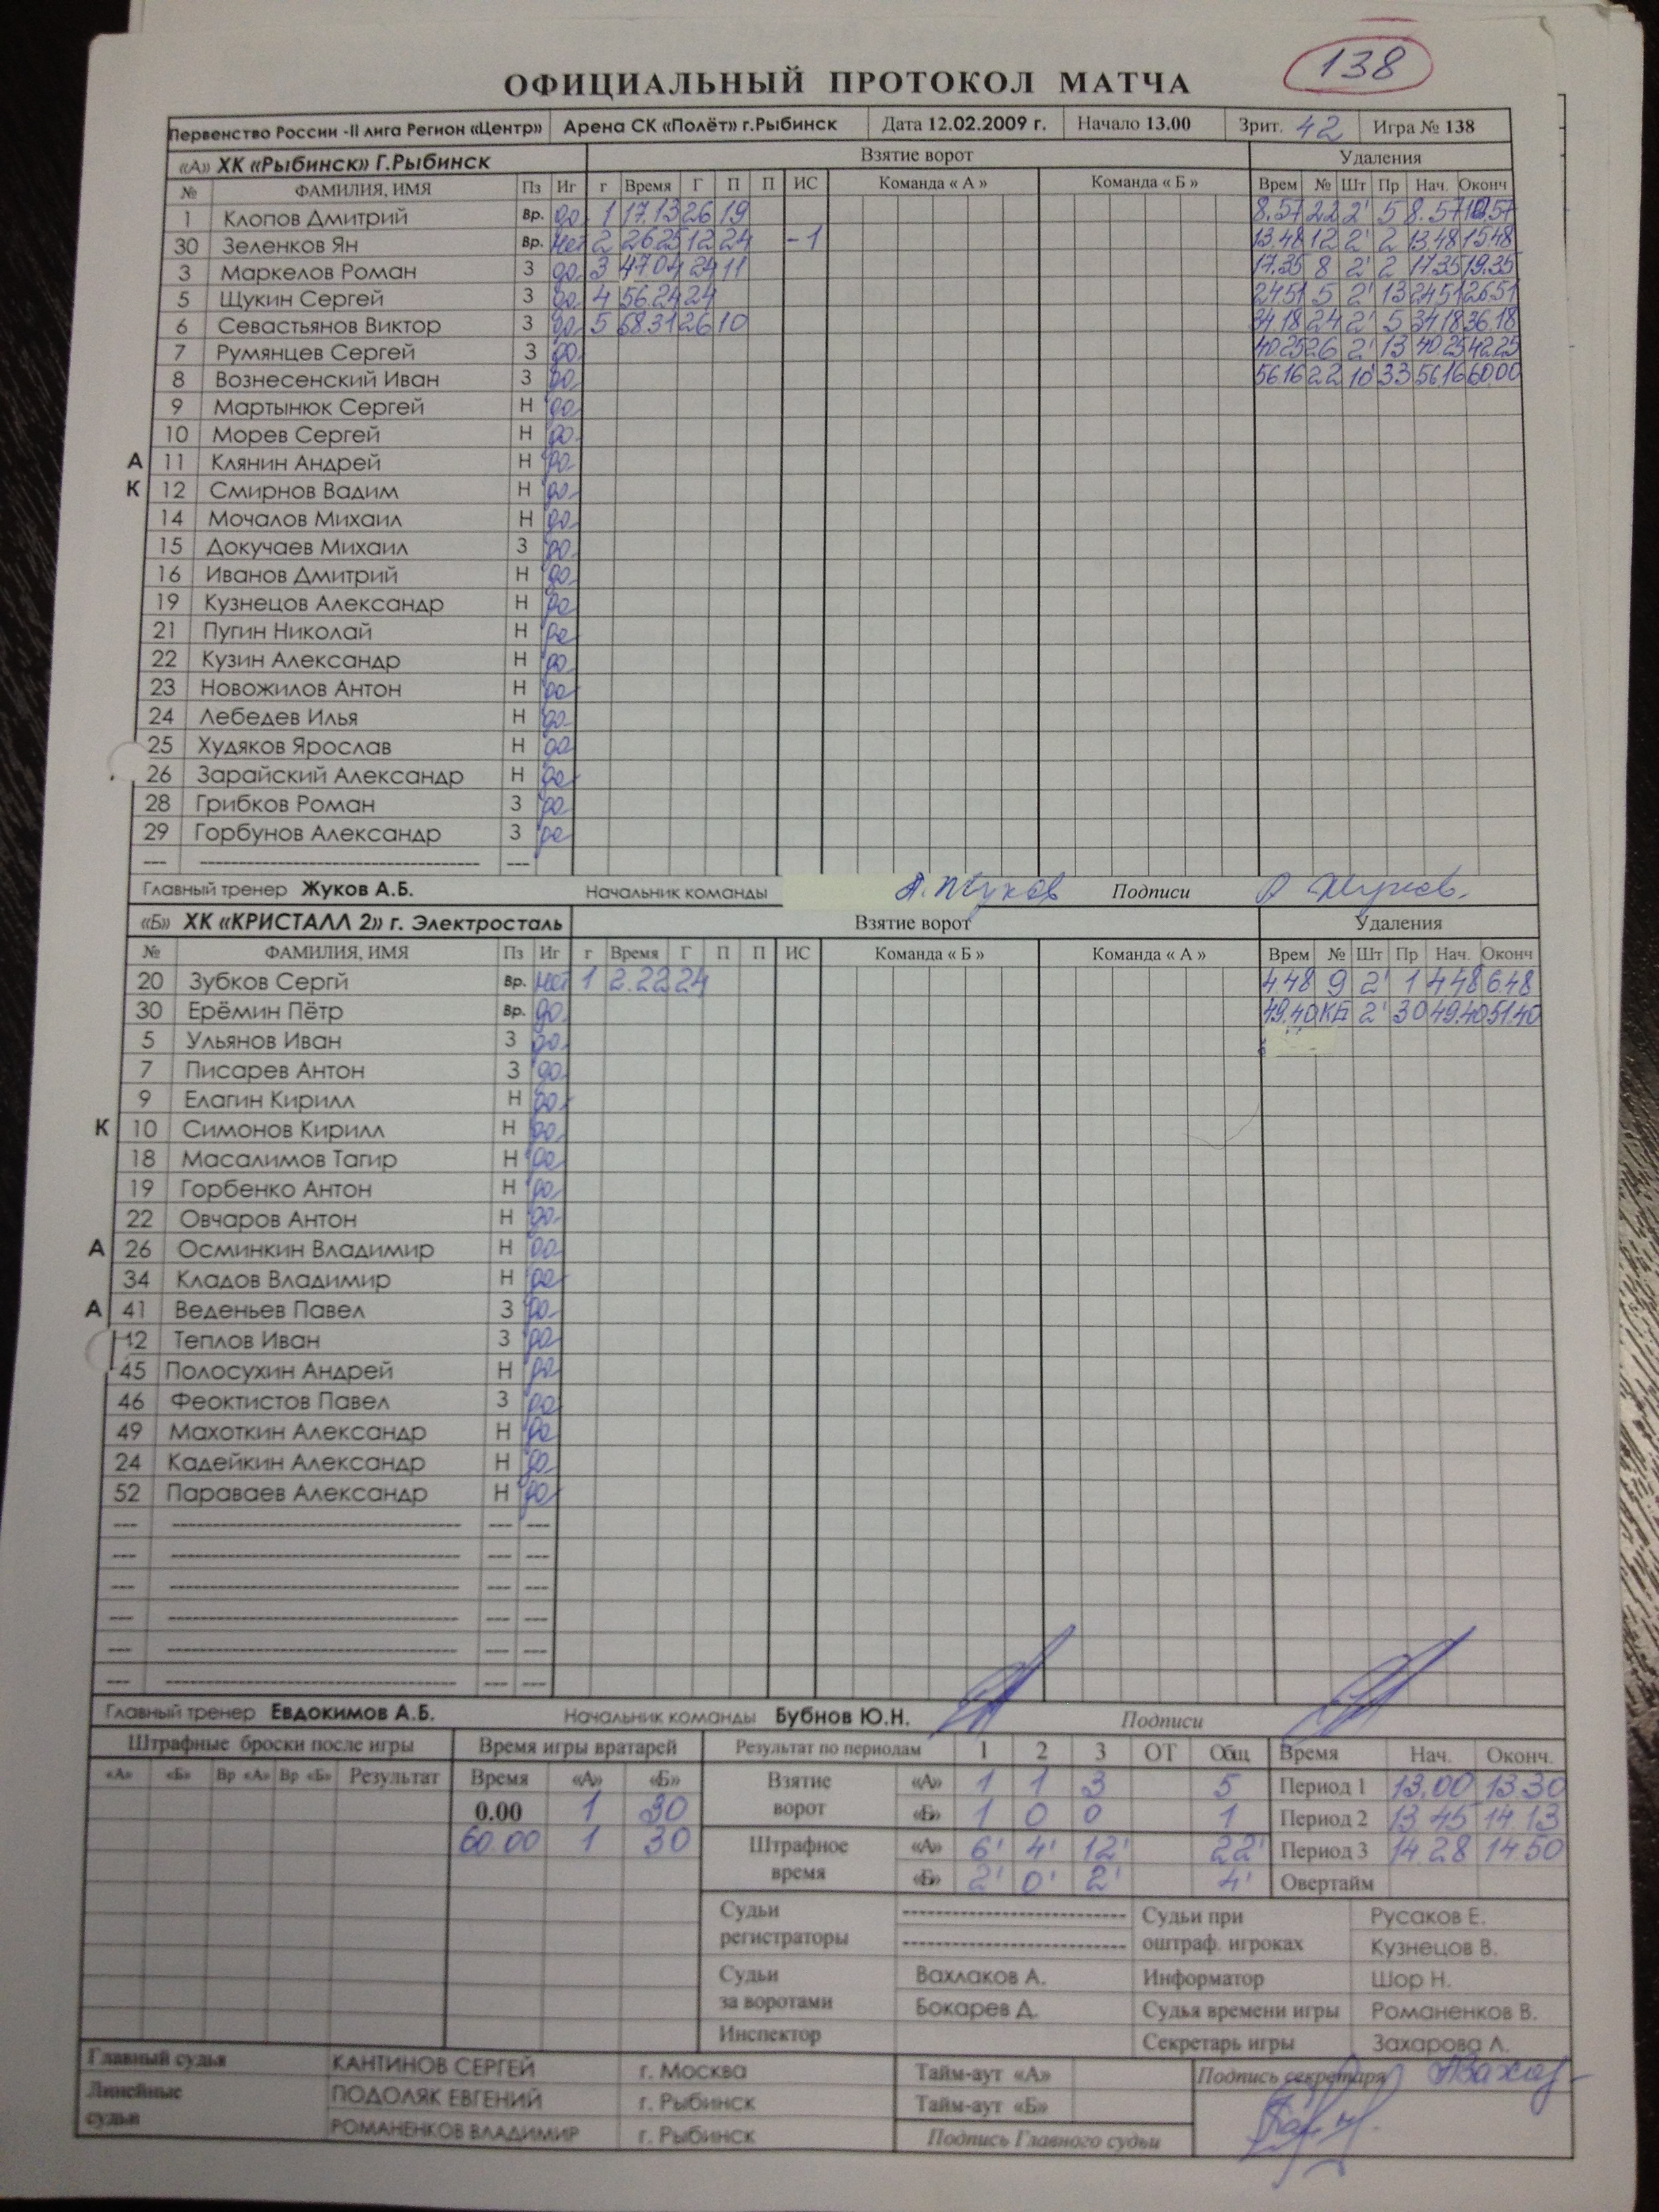 138
ОФИЦИАЛЬНЫЙ ПРОТОКОЛ МАТЧА
Первенство России -II лига Регион «Центр» Арена СК «Полёт» г.Рыбинск Дата 12.02.2009 г. Начало 13.00 Зрит. 42 Игра № 138
«А» ХК «Рыбинск» Г.Рыбинск Взятие ворот Удаления
№ ФАМИЛИЯ, ИМЯ Пз Иг г Время Г П П ИС Команда « А » Команда « Б » Врем № Шт Пр Нач. Оконч
1 Клопов Дмитрий Вр. да 1 17.13 26 19 8.57 22 2' 5 8.57 10.57
30 Зеленков Ян Вр. нет 2 26.25 12 24 -1 13.48 12 2' 2 13.48 15.48
3 Маркелов Роман З да 3 47.04 24 11 17.35 8 2' 2 17.35 19.35
5 Щукин Сергей З да 4 56.24 24 24.51 5 2' 13 24.51 26.51
6 Севастьянов Виктор З да 5 58.31 26 10 34.18 24 2' 5 34.18 36.18
7 Румянцев Сергей З да 40.25 26 2' 13 40.25 42.25
8 Вознесенский Иван З да 56.16 22 10' 33 56.16 60.00
9 Мартынюк Сергей Н да
10 Морев Сергей Н да
А 11 Клянин Андрей Н да
К 12 Смирнов Вадим Н да
14 Мочалов Михаил Н да
15 Докучаев Михаил З да
16 Иванов Дмитрий Н да
19 Кузнецов Александр Н да
21 Пугин Николай Н да
22 Кузин Александр Н да
23 Новожилов Антон Н да
24 Лебедев Илья Н да
25 Худяков Ярослав Н да
26 Зарайский Александр Н да
28 Грибков Роман З да
29 Горбунов Александр З да
Главный тренер Жуков А.Б. Начальник команды А. Жуков Подписи Жуков.
«Б» ХК «КРИСТАЛЛ 2» г. Электросталь Взятие ворот Удаления
№ ФАМИЛИЯ, ИМЯ Пз Иг г Время Г П П ИС Команда « Б » Команда « А » Врем № Шт Пр Нач. Оконч
20 Зубков Сергй Вр. нет 1 2.22 24 4.48 9 2' 1 4.48 6.48
30 Ерёмин Пётр Вр. да 49.40 КБ 2' 30 49.40 51.40
5 Ульянов Иван З да
7 Писарев Антон З да
9 Елагин Кирилл Н да
К 10 Симонов Кирилл Н да
18 Масалимов Тагир Н да
19 Горбенко Антон Н да
22 Овчаров Антон Н да
А 26 Осминкин Владимир Н да
34 Кладов Владимир Н да
А 41 Веденьев Павел З да
42 Теплов Иван З да
45 Полосухин Андрей Н да
46 Феоктистов Павел З да
49 Махоткин Александр Н да
24 Кадейкин Александр Н да
52 Параваев Александр Н да
Главный тренер Евдокимов А.Б. Начальник команды Бубнов Ю.Н. Подписи
Штрафные броски после игры Время игры вратарей Результат по периодам 1 2 3 ОТ Общ Время Нач. Оконч.
«А» «Б» Вр «А» Вр «Б» Результат Время «А» «Б» Взятие ворот «А» 1 1 3 5 Период 1 13.00 13.30
0.00 1 30 «Б» 1 0 0 1 Период 2 13.45 14.13
60.00 1 30 Штрафное время «А» 6' 4' 12' 22' Период 3 14.28 14.50
«Б» 2' 0' 2' 4' Овертайм
Судьи регистраторы Судьи при оштраф. игроках Русаков Е.
Кузнецов В.
Судьи за воротами Вахлаков А. Информатор Шор Н.
Бокарев Д. Судья времени игры Романенков В.
Инспектор Секретарь игры Захарова Л.
Главный судья КАНТИНОВ СЕРГЕЙ г. Москва Тайм-аут «А» Подпись секретаря
Линейные судьи ПОДОЛЯК ЕВГЕНИЙ г. Рыбинск Тайм-аут «Б»
РОМАНЕНКОВ ВЛАДИМИР г. Рыбинск Подпись Главного судьи